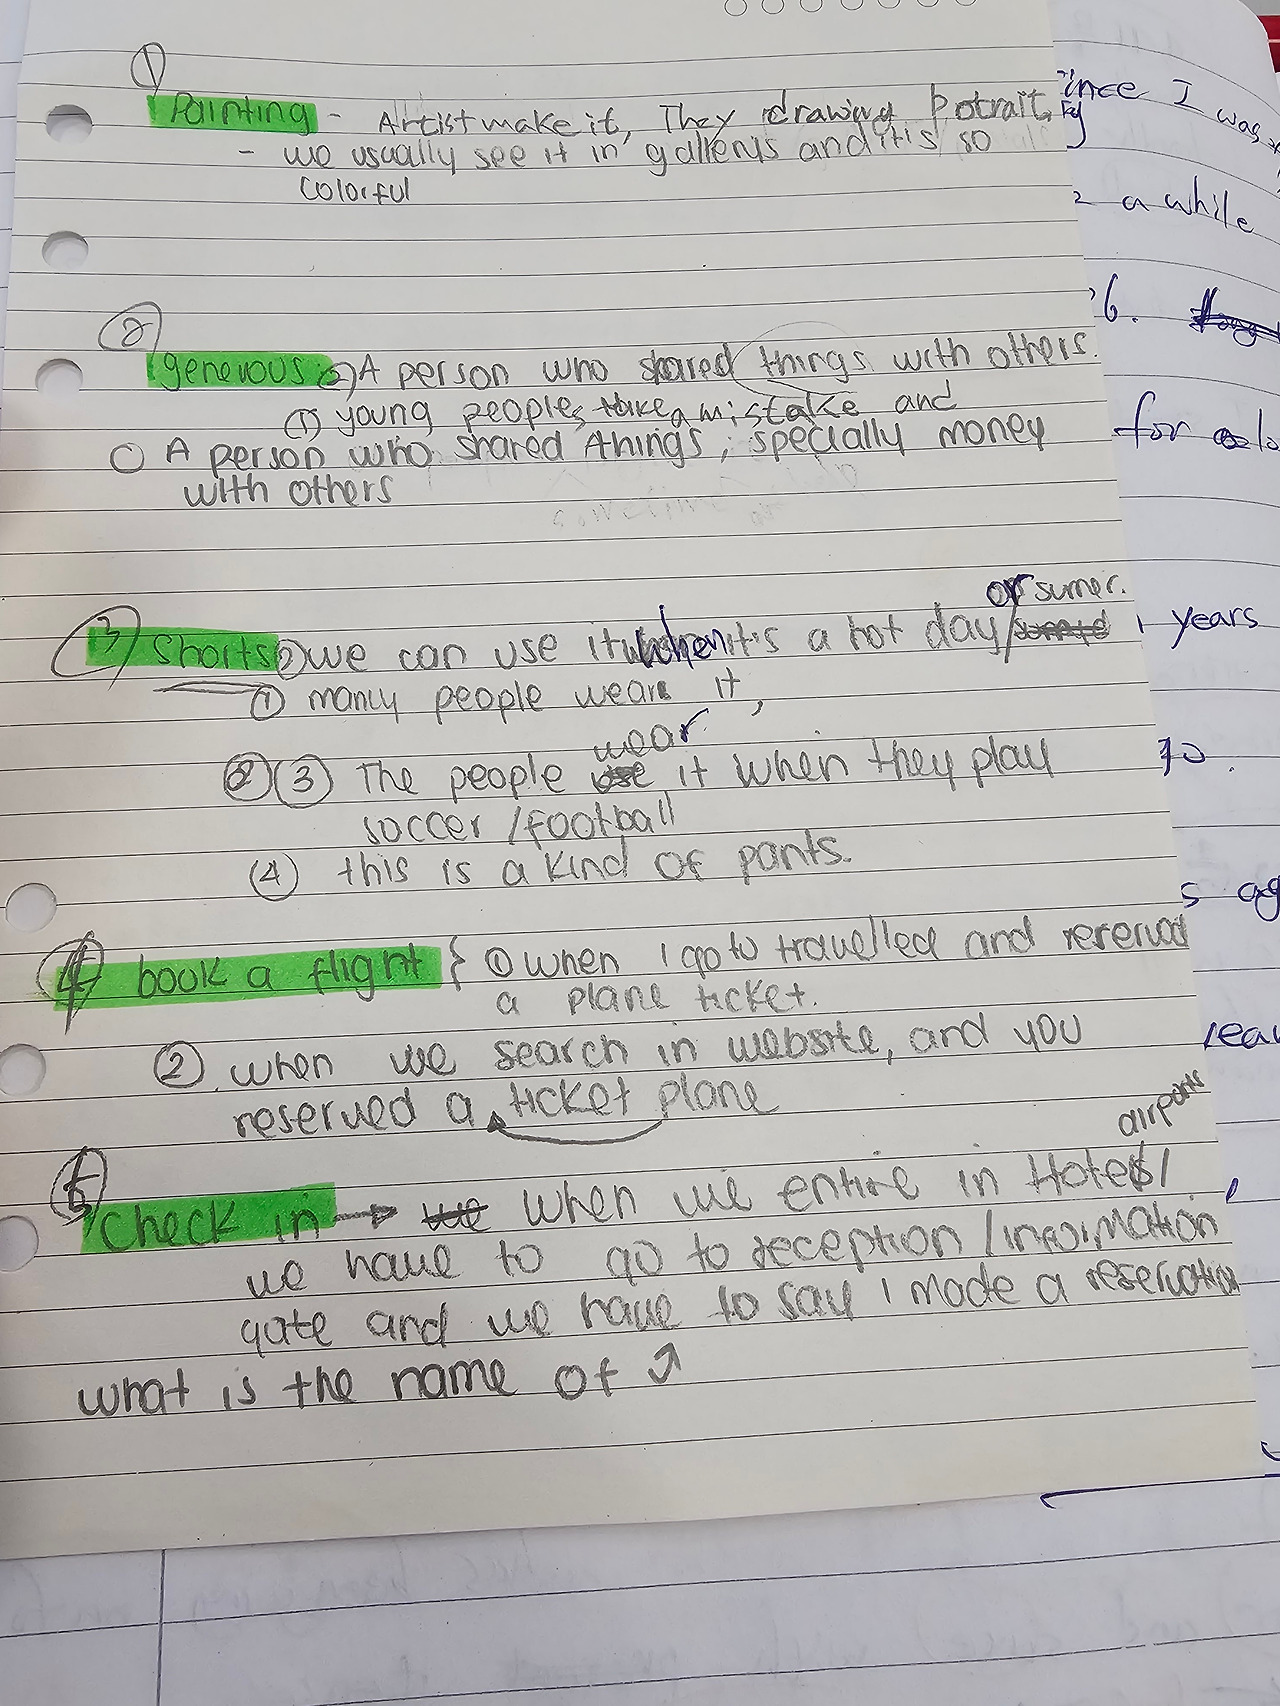 ①
Painting - Artist make it, They drawing potrait,
- we usually see it in gallerys and it is so
colorful
②
generous ② A person who shared things with others.
(1) young people, take a mistake and
A person who shared things, specially money
with others
or sumer.
③ Shorts ② we can use it when it's a hot day/
① many people wear it,
wear
② (3) The people use it when they play
soccer / football
(4) this is a kind of pants.
④ book a flight { ① when I go to travelled and reserved
a plane ticket.
② when we search in website, and you
reserved a ticket plane
airports
⑤ Check in → we when we entire in Hotels/
we have to go to reception / information
gate and we have to say I made a reservation
what is the name of ↗
ince I was
a while
6.
for
years
10.
s ag